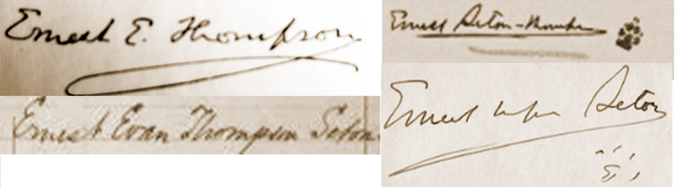 Ernest E. Thompson
Ernest Seton-Thompson
Ernest Evan Thompson Seton
Ernest Seton